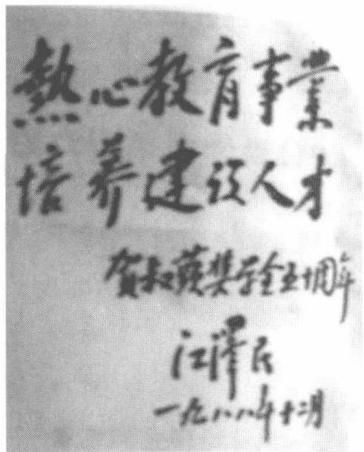 熱心教育事業
培养建设人才
贺叔蘋奖学金五十周年
江澤民
一九八八年十二月